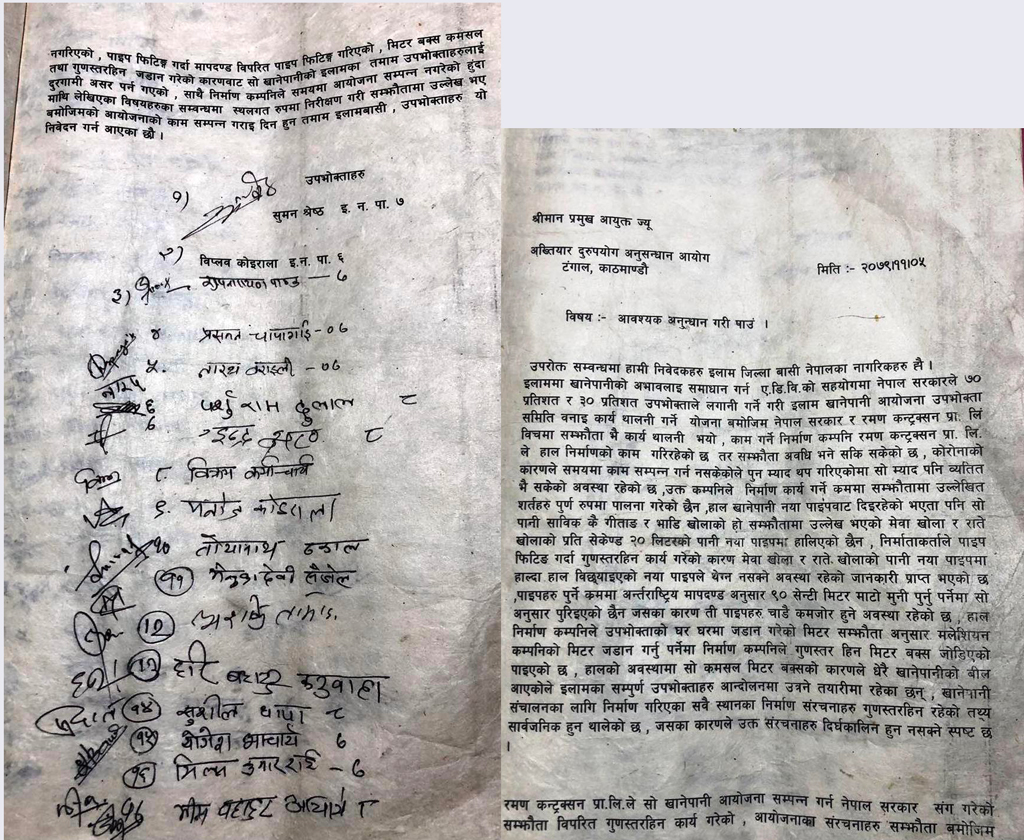 श्रीमान प्रमुख आयुक्त ज्यू
अख्तियार दुरुपयोग अनुसन्धान आयोग
टंगाल, काठमाण्डौ
मिति :- २०७९।११।०५
विषय :- आवश्यक अनुन्धान गरी पाउं ।
उपरोक्त सम्वन्धमा हामी निवेदकहरु इलाम जिल्ला बासी नेपालका नागरिकहरु हौ ।
इलाममा खानेपानीको अभावलाइ समाधान गर्न ए.डि.वि.को सहयोगमा नेपाल सरकारले ७०
प्रतिशत र ३० प्रतिशत उपभोक्ताले लगानी गर्ने गरी इलाम खानेपानी आयोजना उपभोक्ता
समिति वनाइ कार्य थालनी गर्ने योजना बमोजिम नेपाल सरकार र रमण कन्ट्रक्सन प्रा. लि
विचमा सम्झौता भै कार्य थालनी भयो , काम गर्ने निर्माण कम्पनि रमण कन्ट्रक्सन प्रा. लि.
ले हाल निर्माणको काम गरिरहेको छ तर सम्झौता अवधि भने सकि सकेको छ , कोरोनाको
कारणले समयमा काम सम्पन्न गर्न नसकेकोले पुन म्याद थप गरिएकोमा सो म्याद पनि व्यतित
भै सकेको अवस्था रहेको छ ,उक्त कम्पनिले निर्माण कार्य गर्ने कममा सम्झौतामा उल्लेखित
शर्तहरु पुर्ण रुपमा पालना गरेको छैन ,हाल खानेपानी नया पाइपवाट दिइरहेको भएता पनि सो
पानी साविक कै गीताङ र भाडि खोलाको हो सम्झौतामा उल्लेख भएको मेवा खोला र राते
खोलाको प्रति सेकेण्ड २० लिटरको पानी नया पाइपमा हालिएको छैन , निर्माताकर्ताले पाइप
फिटिङ गर्दा गुणस्तरहिन कार्य गरेको कारण मेवा खोला र राते खोलाको पानी नया पाइपमा
हाल्दा हाल विछ्याइएको नया पाइपले थेग्न नसक्ने अवस्था रहेको जानकारी प्राप्त भएको छ
,पाइपहरु पुर्ने कममा अर्न्तराष्ट्रिय मापदण्ड अनुसार ९० सेन्टी मिटर माटो मुनी पुर्नु पर्नेमा सो
अनुसार पुरिइएको छैन जसका कारण ती पाइपहरु चाडै कमजोर हुने अवस्था रहेको छ , हाल
निर्माण कम्पनिले उपभोक्ताको घर घरमा जडान गरेको मिटर सम्झौता अनुसार मलेशियन
कम्पनिको मिटर जडान गर्नु पर्नेमा निर्माण कम्पनिले गुणस्तर हिन मिटर बक्स जोडिएको
पाइएको छ , हालको अवस्थामा सो कमसल मिटर बक्सको कारणले धेरै खानेपानीको बील
आएकोले इलामका सम्पुर्ण उपभोक्ताहरु आन्दोलनमा उत्रने तयारीमा रहेका छन् , खानेपानी
संचालनका लागि निर्माण गरिएका सवै स्थानका निर्माण संरचनाहरु गुणस्तरहिन रहेको तथ्य
सार्वजनिक हुन थालेको छ , जसका कारणले उक्त संरचनाहरु दिर्घकालिन हुन नसक्ने स्पष्ट छ
।
रमण कन्ट्रक्सन प्रा.लि.ले सो खानेपानी आयोजना सम्पन्न गर्न नेपाल सरकार संग गरेको
सम्झौता विपरित गुणस्तरहिन कार्य गरेको , आयोजनाका संरचनाहरु सम्झौता बमोजिम
नगरिएको , पाइप फिटिङ्ग गर्दा मापदण्ड विपरित पाइप फिटिङ्ग गरिएको , मिटर बक्स कमसल
तथा गुणस्तरहिन जडान गरेको कारणवाट सो खानेपानीको इलामका तमाम उपभोक्ताहरुलाई
दुरगामी असर पर्न गएको , साथै निर्माण कम्पनिले समयमा आयोजना सम्पन्न नगरेको हुंदा
माथि लेखिएका विषयहरुका सम्वन्धमा स्थलगत रुपमा निरीक्षण गरी सम्झौतामा उल्लेख भए
बमोजिमको आयोजनाको काम सम्पन्न गराइ दिन हुन तमाम इलामबासी , उपभोक्ताहरु यो
निवेदन गर्न आएका छौ ।
उपभोक्ताहरु
१)
सुमन श्रेष्ठ इ. न. पा. ७
२)
विप्लव कोइराला इ.न. पा. ६
३) ७
४ प्रसन्न चापागाई - ०७
५. ०७
६ पर्शु राम दुलाल ८
७ ८
८. विक्रम
९. मनोज कोइराला
१० तोयानाथ ढकाल
११
१२
१३ हरि बहादुर
१४ सुशील थापा ८
१५ आचार्य ७
१६ - ७
१७ भीम बहादुर आचार्य ८